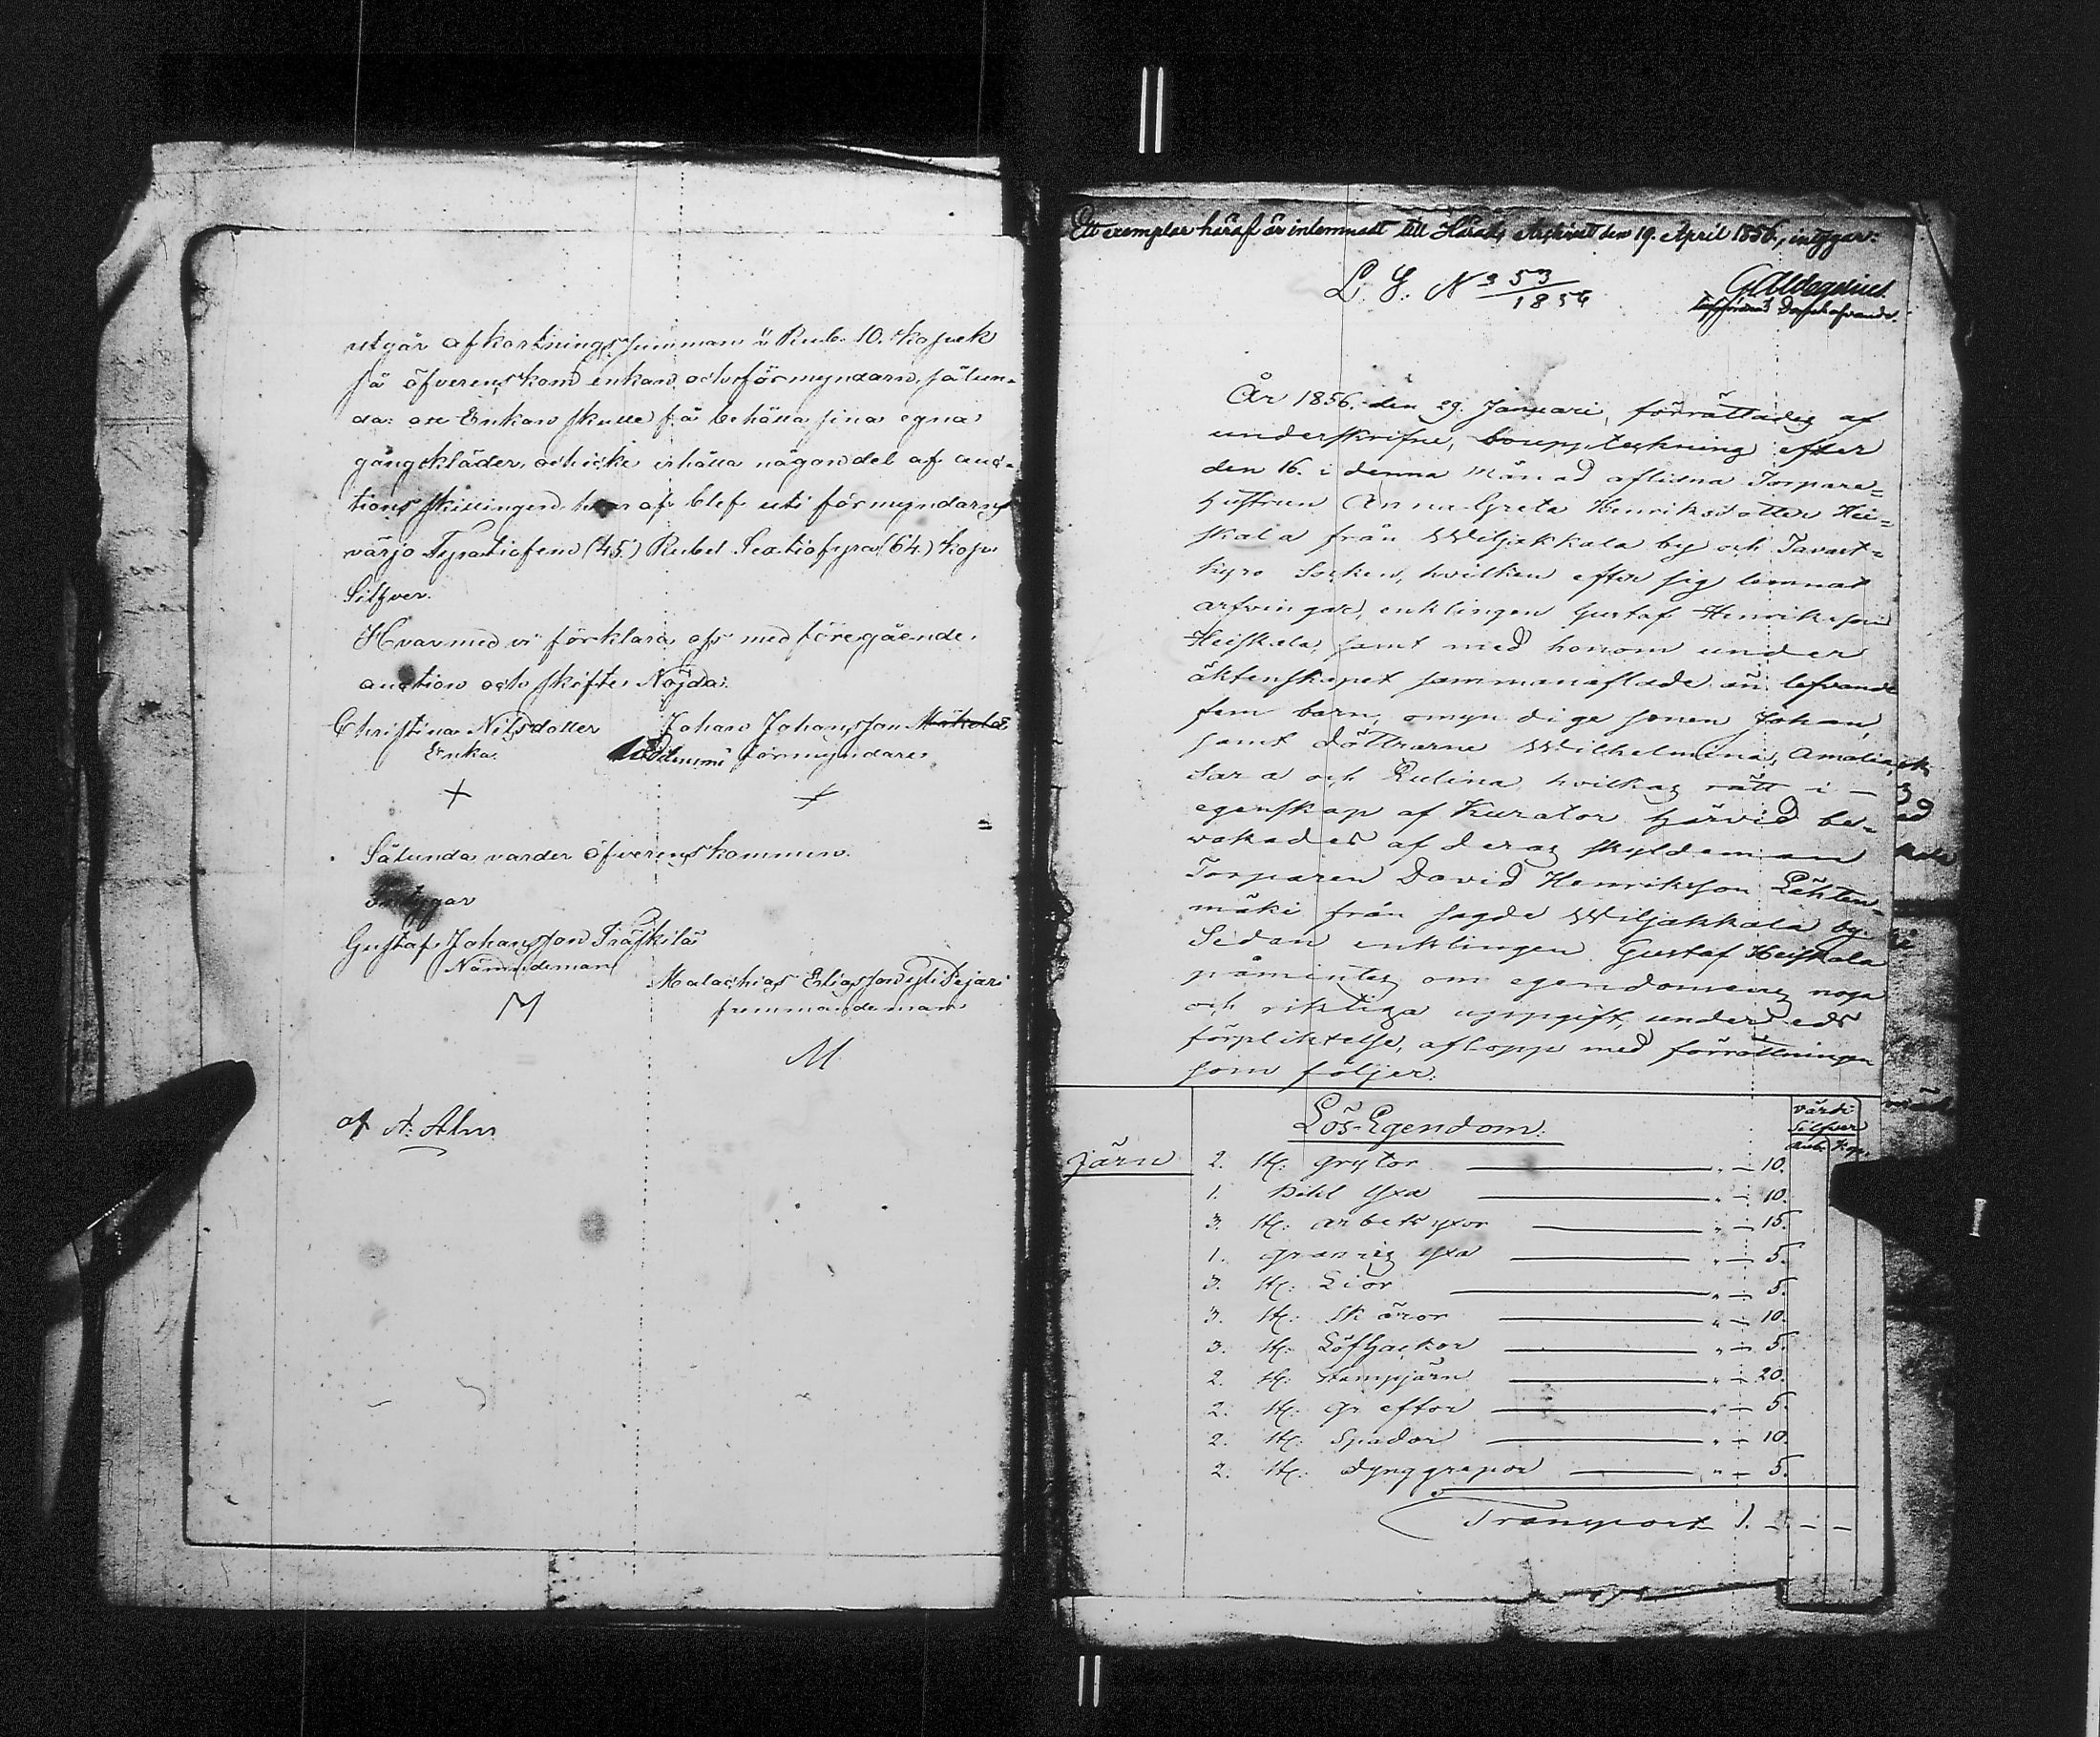 utgör afkortnings summan " Rub. 10. kopek
så öfverens kom enkan och förmyndarn, sålun-
da: att Enkan skulle få behålla sina egna
gångkläder, och icke erhålla någon del af auc-
tions skillingen, hvar af blef uti förmyndarns
värjo Fyratiofem (45.) Rubel Sextiofyra (64.) kop.
Silfver.
Hvarmed vi förklara oss med föregående
auction och skifte Nöjda:
Christina Nilsdotter Johan Johansson
Enka. förmyndare
+ +
Sålunda varder öfverens kommen.
Intygar
Gustaf Johansson Träskilä
Nämndeman Malachias Eliasson yli Pejari
M fremmande man
M
af A: Alm
Ett exemplar häraf är inlemnadt till Härads Archivet den 19. April 1856., intygar:
L. G. No 53
1856
År 1856. den 29. Januari, förrättades af
underskrifne, bouppteckning efter
den 16. i denna Månad aflidna Torpare-
hustrun Anna Greta Henriksdotter Hei-
skala från Wiljakkala by och Tavast-
kyro Socken, hvilken efter sig lemnat
arfvingar, enklingen Gustaf Henriksson
Heiskala, samt med honom under
äktenskapet sammanaflade än lefvande
fem barn, omyndige sonen Johan,
samt döttrarne Wilhelmina, Amalia,
Sara och Rulina hvilkas rätt i —
egenskap af Kurator härvid be-
vakades af deras skyldeman
Torparen David Henriksson Lähten-
mäki från sagde Wiljakkala by.
Sedan enklingen Gustaf Heiskala
påmintes om egendomens noga
och riktiga uppgift, under eds
förpliktelse, aflopp med förrättningen
som följer:
Lös-Egendom: värde
Silfver
Rub. Kop.
Järn 2. st: grytor " — 10.
1. Bihl yxa " — 10.
3. st: arbets yxor " — 15.
1. granris yxa " — 5.
3. st: Liar " — 5.
3. st: Skäror " — 10.
3. st: Löfhackor " — 5.
2. st: stampjärn " — 20.
2. st: greftor " — 5.
2. st: Spador " — 10.
2. st: dynggrepor " — 5.
Transport 1. — — —